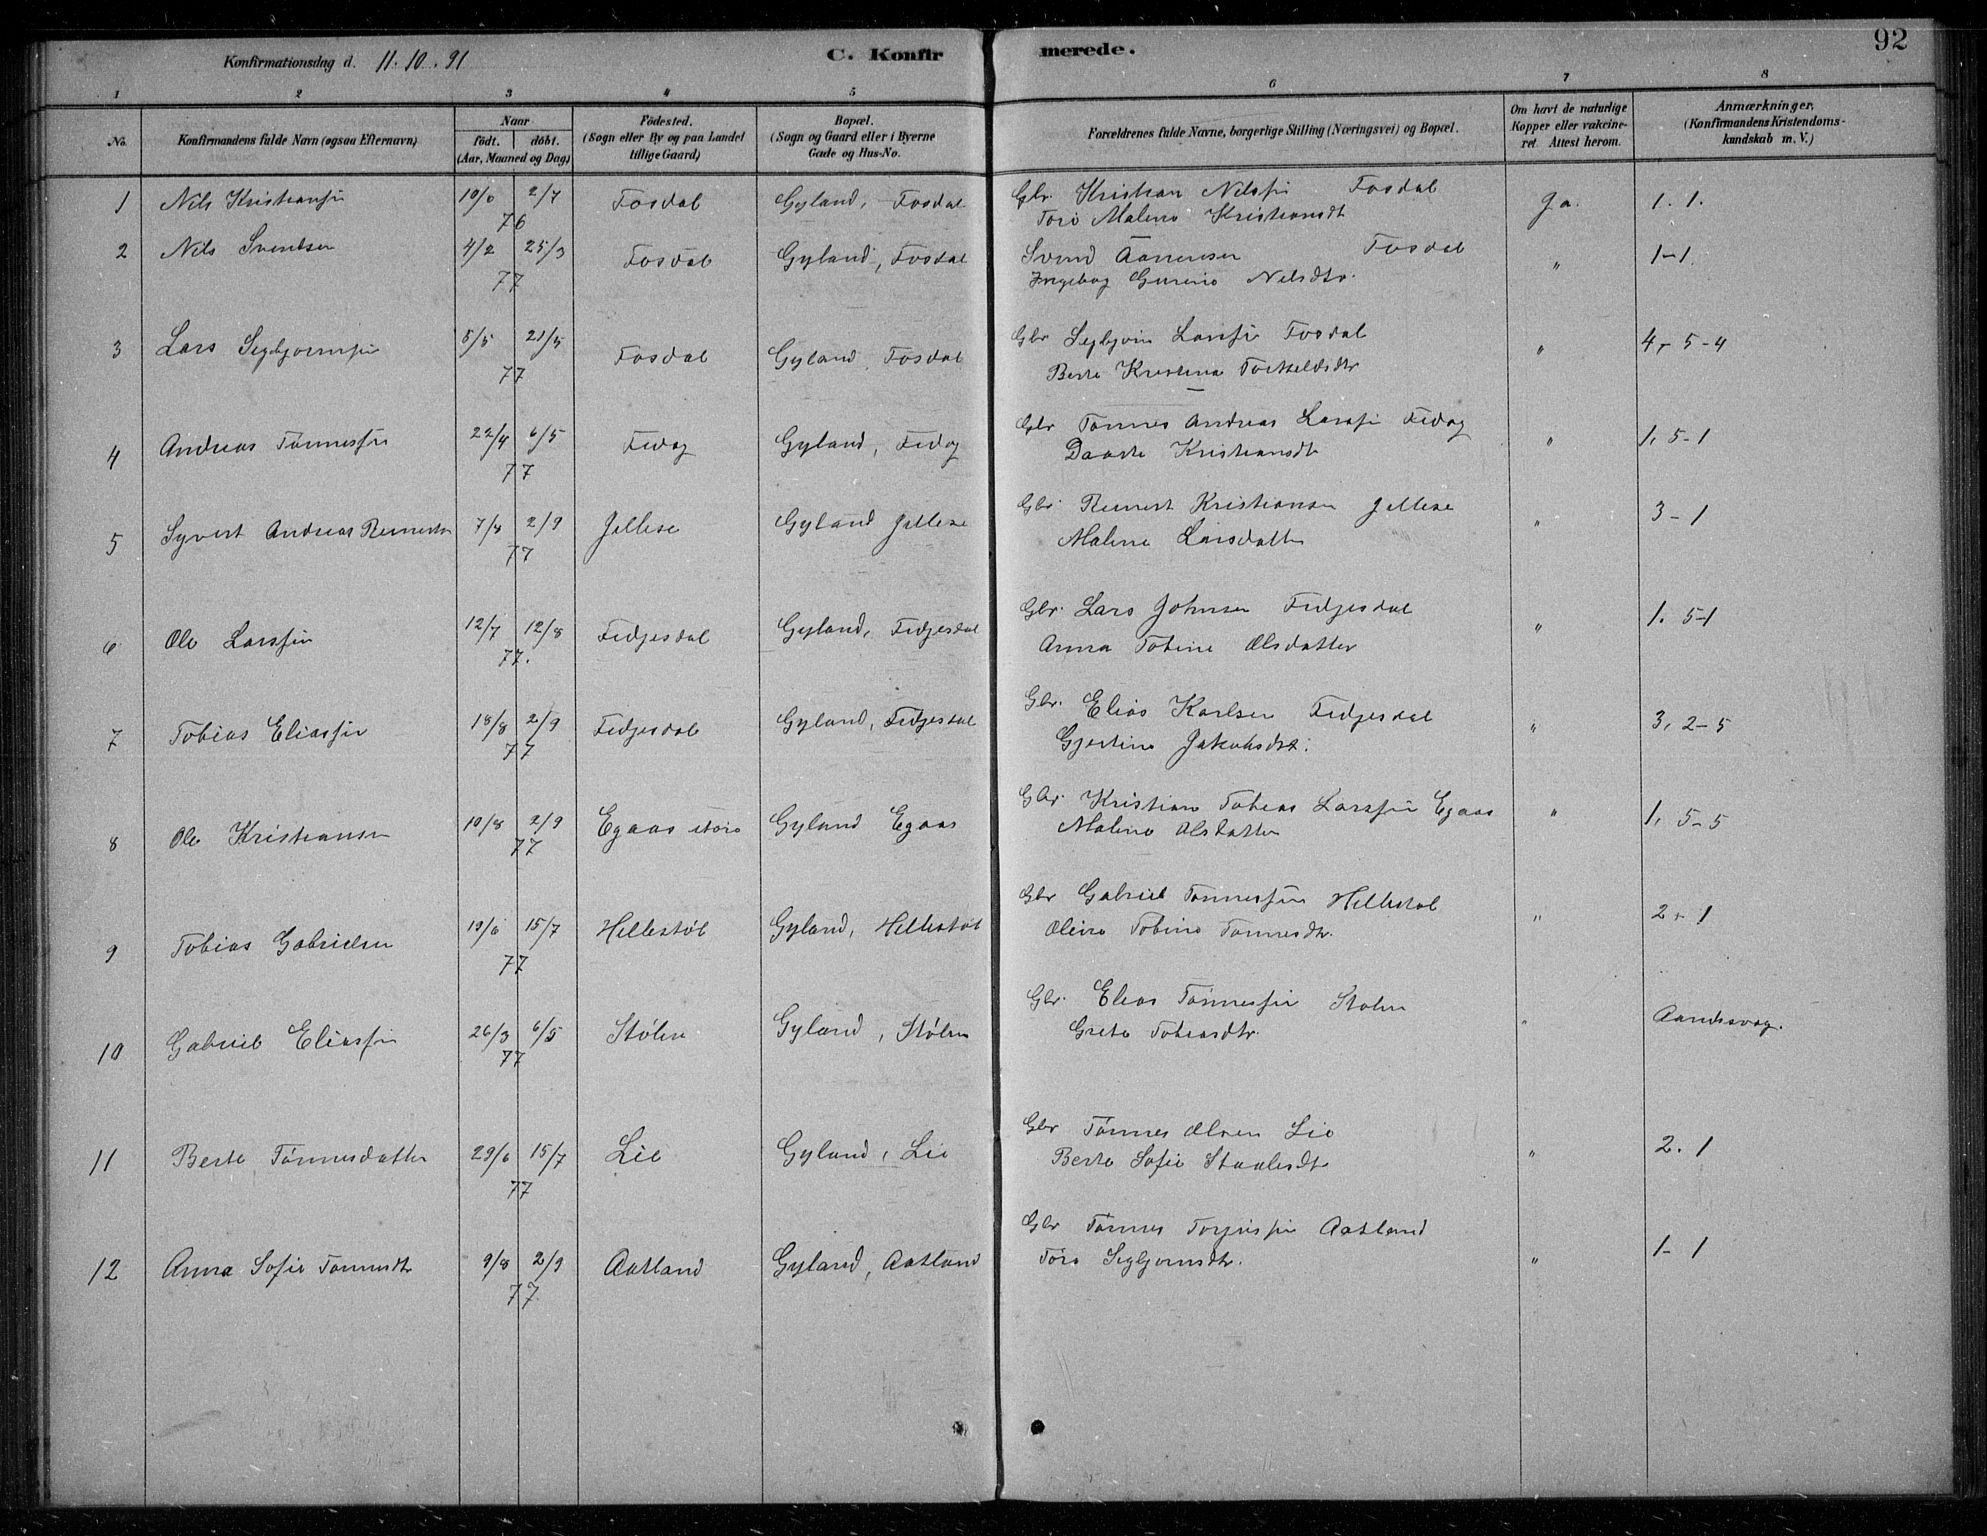 92
Konfirmationsdag d. 11.10.91 C. Konfirmerede.
1 2 3 4 5 6 7 8
No. Konfirmandens fulde Navn (ogsaa Efternavn) Naar födt. döbt. (Aar, Maaned og Dag) Födested. (Sogn eller By og paa Landet tillige Gaard) Bopæl. (Sogn og Gaard eller i Byerne Gade og Hus-No. Forældrenes fulde Navne, borgerlige Stilling (Næringsvei) og Bopæl. Om havt de naturlige Kopper eller vakcineret. Attest herom. Anmærkninger. (Konfirmandens Kristendomskundskab m. V.)
1 Nils Kristiansen 2/7 Fosdal Gyland, Fosdal Gbr. Kristian Nilssen Fosdal Ja. 1. 1.
76 Toro Malene Kristiansdt
2 Nils Svendsen 4/2 25/3 Fosdal Gyland, Fosdal Svend Aanensen Fosdal " 1-1.
77 Ingeborg Gurine Nilsdtr.
3 Lars Sigbjørnsen 5/5 21/5 Fosdal Gyland, Fosdal Gbr Sigbjørn Larssen Fosdal " 4, 5-4
77 Berte Kristine Torkeldsdtr
4 Andreas Tønnessen 22/4 6/5 Fidog Gyland, Fidog Gbr Tønnes Andreas Larssen Fidog " 1, 5-1
77 Daarte Kristiansdt
5 Syvert Andreas Reinertsen 7/8 2/9 Jellese Gyland Jellese Gbr Reinert Kristiansen Jellese " 3-1
77 Malene Larsdatter
6 Ole Larssen 12/7 12/8 Fidjesdal Gyland, Fidjesdal Gbr. Lars Johnsen Fidjesdal " 1. 5-1
77. Anna Tobine Olsdatter
7 Tobias Eliassen 18/8 2/9 Fidjesdal Gyland, Fidjesdal Gbr. Elias Karlsen Fidjesdal " 3, 2-5
77 Gjertine Jakobsdt.
8 Ole Kristiansen 10/8 2/9 Egaas store Gyland Egaas Gbr. Kristian Tobias Larssen Egaas " 1, 5-5
77 Malene Olsdatter
9 Tobias Gabrielsen 19/6 15/7 Hellestøl Gyland, Hellestøl Gbr Gabriel Tønnessen Hellestøl " 2-1
77 Oline Tobine Tønnesdtr.
10 Gabriel Eliassen 26/3 6/5 Stølen Gyland, Stølen Gbr. Elias Tønnessen Stølen " Aandssvag.
77 Grete Tobiasdtr.
11 Berte Tønnesdatter 29/6 15/7 Lie Gyland, Lie Gbr Tønnes Olsen Lie " 2. 1
77 Berte Sofie Staalesdt
12 Anna Sofie Tønnesdtr 9/8 2/9 Aatland Gyland, Aatland Gbr Tønnes Torjussen Aatland " 1-1
77. Toro Sigbjørnsdtr.